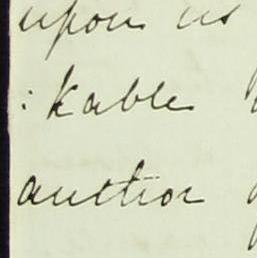 upon us
: kable
auction